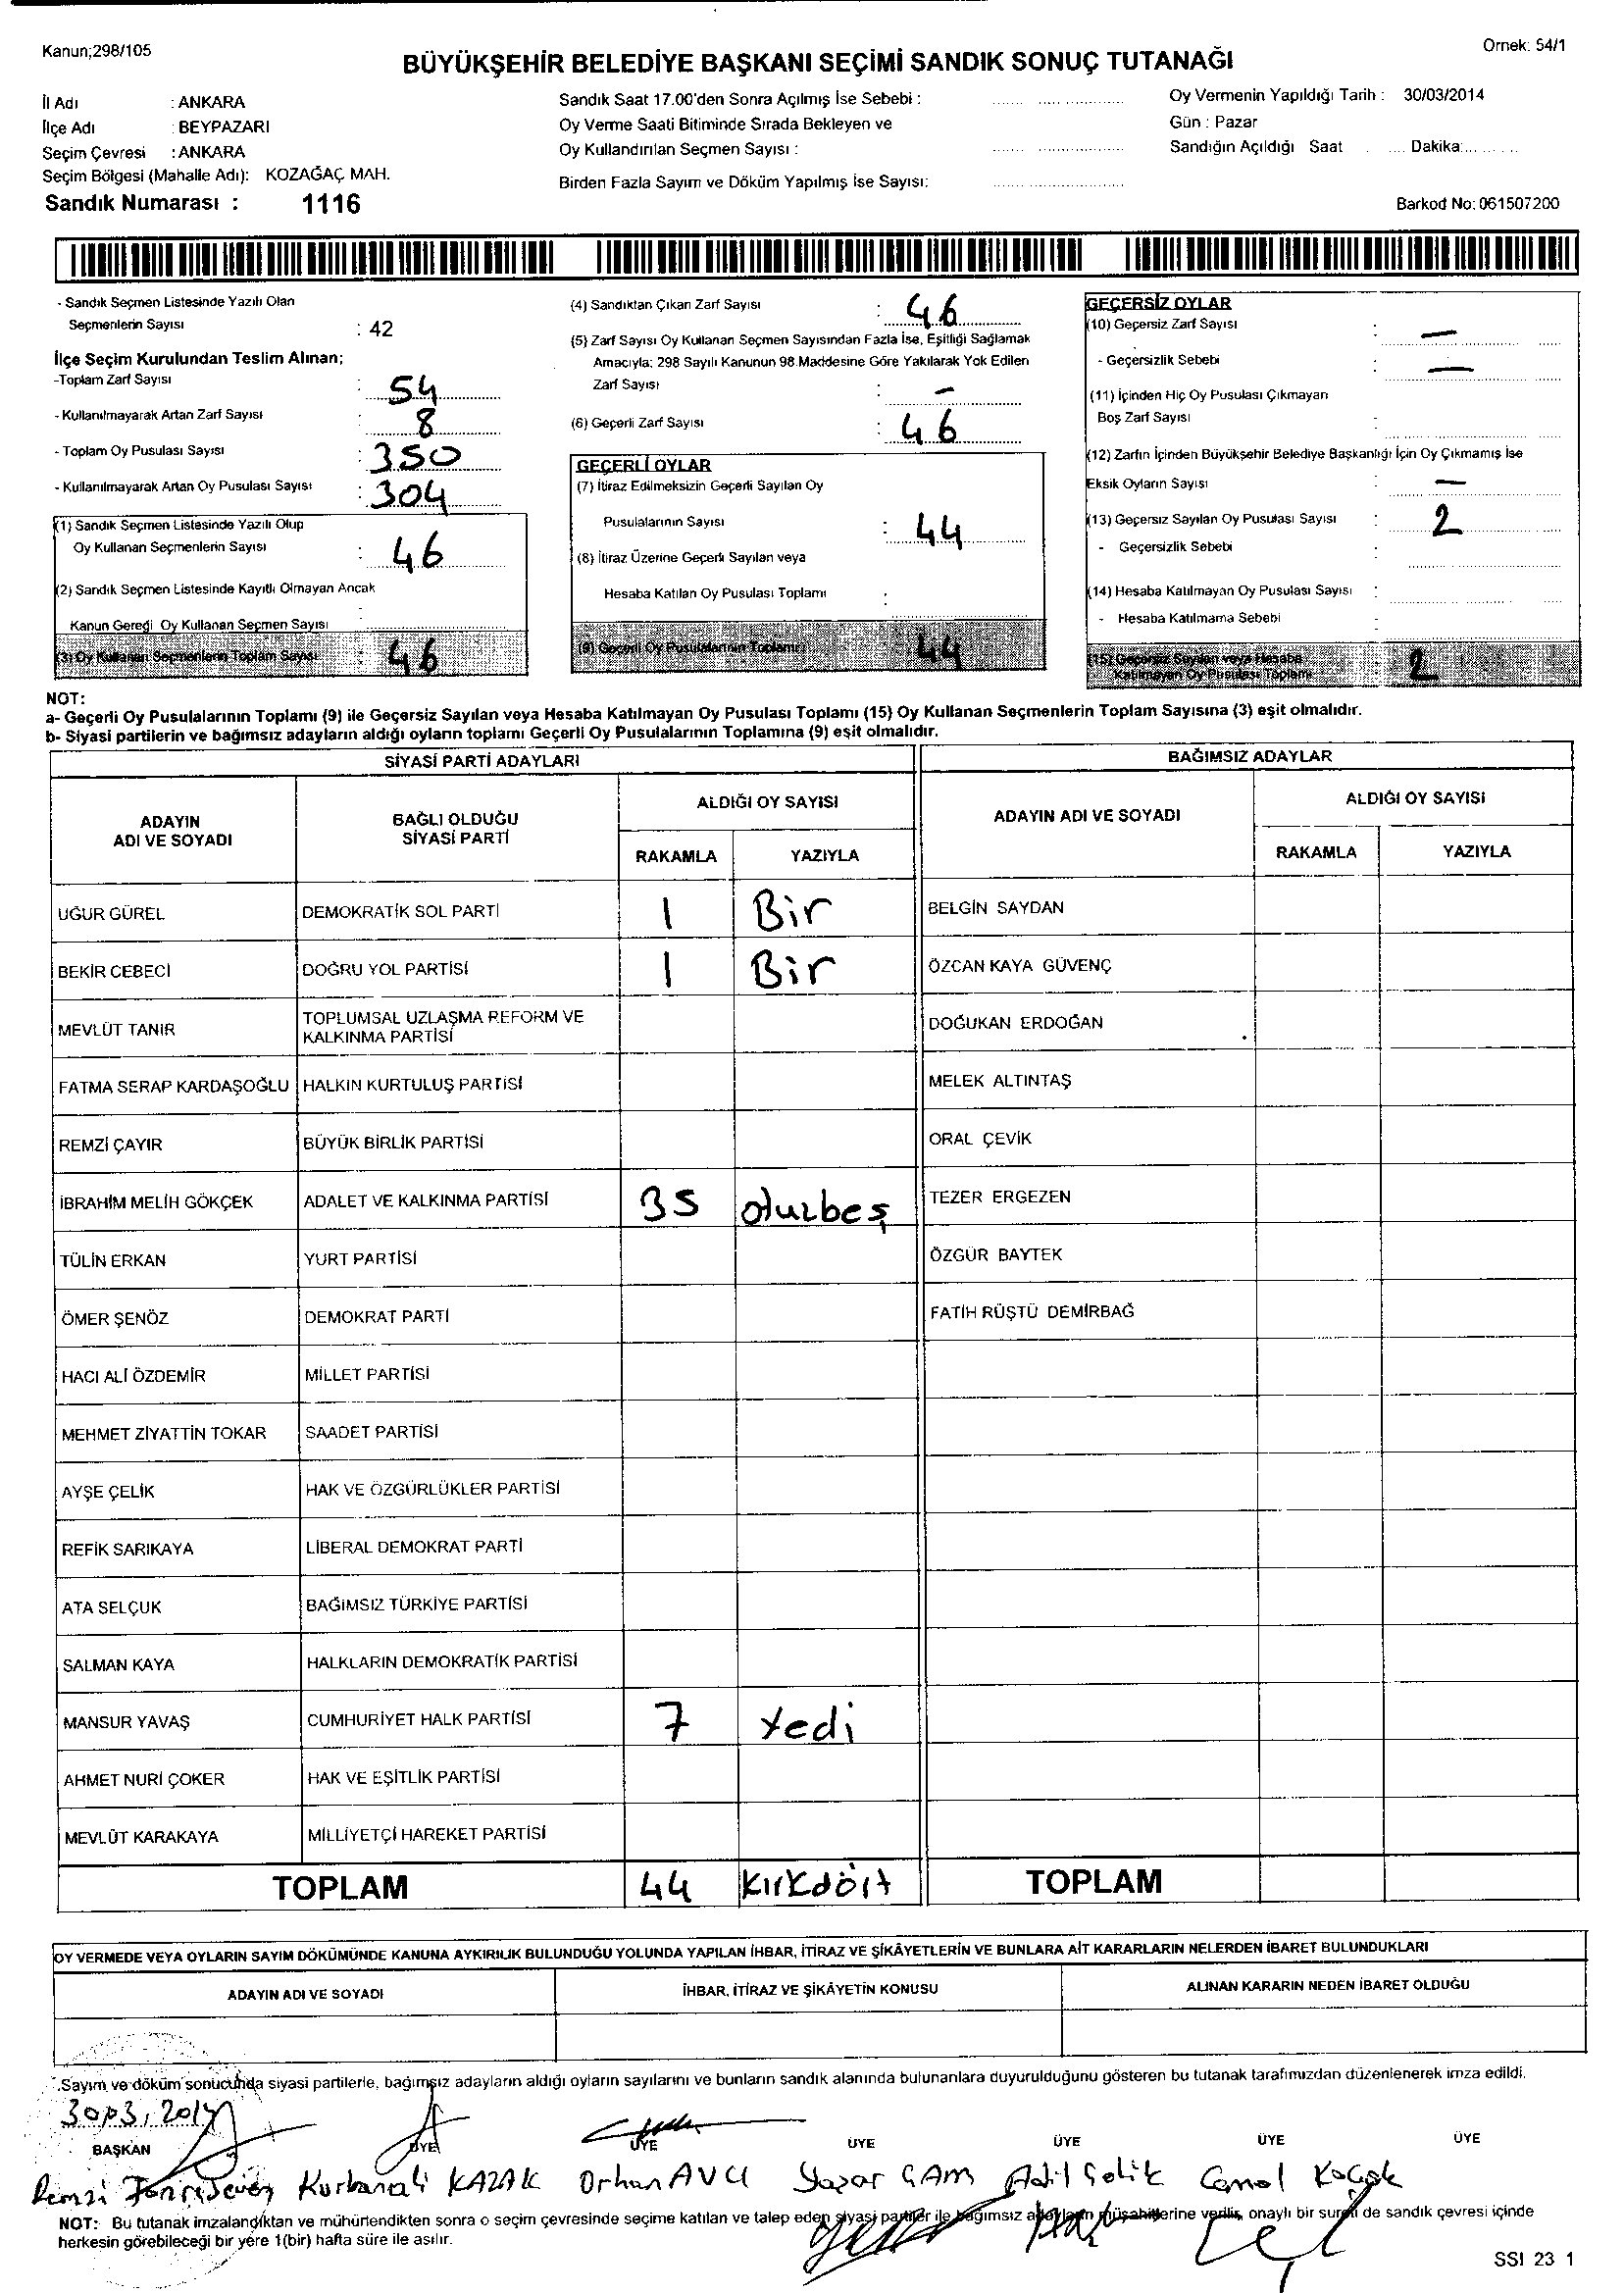 Kanun;298/105
Örnek: 54/1
BÜYÜKŞEHİR BELEDİYE BAŞKANI SEÇİMİ SANDIK SONUÇ TUTANAĞI
İl Adı : ANKARA
İlçe Adı : BEYPAZARI
Seçim Çevresi : ANKARA
Seçim Bölgesi (Mahalle Adı): KOZAĞAÇ MAH.
Sandık Numarası : 1116
Sandık Saat 17.00'den Sonra Açılmış İse Sebebi :
Oy Verme Saati Bitiminde Sırada Bekleyen ve
Oy Kullandırılan Seçmen Sayısı :
Birden Fazla Sayım ve Döküm Yapılmış İse Sayısı:
Oy Vermenin Yapıldığı Tarih : 30/03/2014
Gün : Pazar
Sandığın Açıldığı Saat Dakika:
Barkod No: 061507200
- Sandık Seçmen Listesinde Yazılı Olan
Seçmenlerin Sayısı : 42
İlçe Seçim Kurulundan Teslim Alınan;
-Toplam Zarf Sayısı : 54
- Kullanılmayarak Artan Zarf Sayısı : 8
- Toplam Oy Pusulası Sayısı : 350
- Kullanılmayarak Artan Oy Pusulası Sayısı : 304
(1) Sandık Seçmen Listesinde Yazılı Olup
Oy Kullanan Seçmenlerin Sayısı : 46
(2) Sandık Seçmen Listesinde Kayıtlı Olmayan Ancak
Kanun Gereği Oy Kullanan Seçmen Sayısı :
(3) Oy Kullanan Seçmenlerin Toplam Sayısı : 46
(4) Sandıktan Çıkan Zarf Sayısı : 46
(5) Zarf Sayısı Oy Kullanan Seçmen Sayısından Fazla İse, Eşitliği Sağlamak
Amacıyla; 298 Sayılı Kanunun 98.Maddesine Göre Yakılarak Yok Edilen
Zarf Sayısı : -
(6) Geçerli Zarf Sayısı : 46
GEÇERLİ OYLAR
(7) İtiraz Edilmeksizin Geçerli Sayılan Oy
Pusulalarının Sayısı : 44
(8) İtiraz Üzerine Geçerli Sayılan veya
Hesaba Katılan Oy Pusulası Toplamı :
(9) Geçerli Oy Pusulalarının Toplamı : 44
GEÇERSİZ OYLAR
(10) Geçersiz Zarf Sayısı : -
- Geçersizlik Sebebi : -
(11) İçinden Hiç Oy Pusulası Çıkmayan
Boş Zarf Sayısı :
(12) Zarfın İçinden Büyükşehir Belediye Başkanlığı İçin Oy Çıkmamış İse
Eksik Oyların Sayısı : -
(13) Geçersiz Sayılan Oy Pusulası Sayısı : 2
- Geçersizlik Sebebi :
(14) Hesaba Katılmayan Oy Pusulası Sayısı :
- Hesaba Katılmama Sebebi :
(15) Geçersiz Sayılan veya Hesaba
Katılmayan Oy Pusulası Toplamı 2
NOT:
a- Geçerli Oy Pusulalarının Toplamı (9) ile Geçersiz Sayılan veya Hesaba Katılmayan Oy Pusulası Toplamı (15) Oy Kullanan Seçmenlerin Toplam Sayısına (3) eşit olmalıdır.
b- Siyasi partilerin ve bağımsız adayların aldığı oyların toplamı Geçerli Oy Pusulalarının Toplamına (9) eşit olmalıdır.
SİYASİ PARTİ ADAYLARI BAĞIMSIZ ADAYLAR
ADAYIN ADI VE SOYADI BAĞLI OLDUĞU SİYASİ PARTİ ALDIĞI OY SAYISI ADAYIN ADI VE SOYADI ALDIĞI OY SAYISI
RAKAMLA YAZIYLA RAKAMLA YAZIYLA
UĞUR GÜREL DEMOKRATİK SOL PARTİ 1 Bir BELGİN SAYDAN
BEKİR CEBECİ DOĞRU YOL PARTİSİ 1 Bir ÖZCAN KAYA GÜVENÇ
MEVLÜT TANIR TOPLUMSAL UZLAŞMA REFORM VE KALKINMA PARTİSİ DOĞUKAN ERDOĞAN
FATMA SERAP KARDAŞOĞLU HALKIN KURTULUŞ PARTİSİ MELEK ALTINTAŞ
REMZİ ÇAYIR BÜYÜK BİRLİK PARTİSİ ORAL ÇEVİK
İBRAHİM MELİH GÖKÇEK ADALET VE KALKINMA PARTİSİ 35 oturbeş TEZER ERGEZEN
TÜLİN ERKAN YURT PARTİSİ ÖZGÜR BAYTEK
ÖMER ŞENÖZ DEMOKRAT PARTİ FATİH RÜŞTÜ DEMİRBAĞ
HACI ALİ ÖZDEMİR MİLLET PARTİSİ
MEHMET ZİYATTİN TOKAR SAADET PARTİSİ
AYŞE ÇELİK HAK VE ÖZGÜRLÜKLER PARTİSİ
REFİK SARIKAYA LİBERAL DEMOKRAT PARTİ
ATA SELÇUK BAĞIMSIZ TÜRKİYE PARTİSİ
SALMAN KAYA HALKLARIN DEMOKRATİK PARTİSİ
MANSUR YAVAŞ CUMHURİYET HALK PARTİSİ 7 Yedi
AHMET NURİ ÇOKER HAK VE EŞİTLİK PARTİSİ
MEVLÜT KARAKAYA MİLLİYETÇİ HAREKET PARTİSİ
TOPLAM 44 Kırkdört TOPLAM
OY VERMEDE VEYA OYLARIN SAYIM DÖKÜMÜNDE KANUNA AYKIRILIK BULUNDUĞU YOLUNDA YAPILAN İHBAR, İTİRAZ VE ŞİKÂYETLERİN VE BUNLARA AİT KARARLARIN NELERDEN İBARET BULUNDUKLARI
ADAYIN ADI VE SOYADI İHBAR, İTİRAZ VE ŞİKÂYETİN KONUSU ALINAN KARARIN NEDEN İBARET OLDUĞU
Sayım ve döküm sonucunda siyasi partilerle, bağımsız adayların aldığı oyların sayılarını ve bunların sandık alanında bulunanlara duyurulduğunu gösteren bu tutanak tarafımızdan düzenlenerek imza edildi.
30.03.2014
BAŞKAN ÜYE ÜYE ÜYE ÜYE ÜYE ÜYE
Remzi Kurbanali KAZAK Orhan AVCI Yaşar ÇAM Adil Çelik Cemal Koçak
NOT: Bu tutanak imzalandıktan ve mühürlendikten sonra o seçim çevresinde seçime katılan ve talep eden siyasi partiler ile bağımsız adayların müşahitlerine verilir, onaylı bir sureti de sandık çevresi içinde
herkesin görebileceği bir yere 1(bir) hafta süre ile asılır.
SSI 23 1